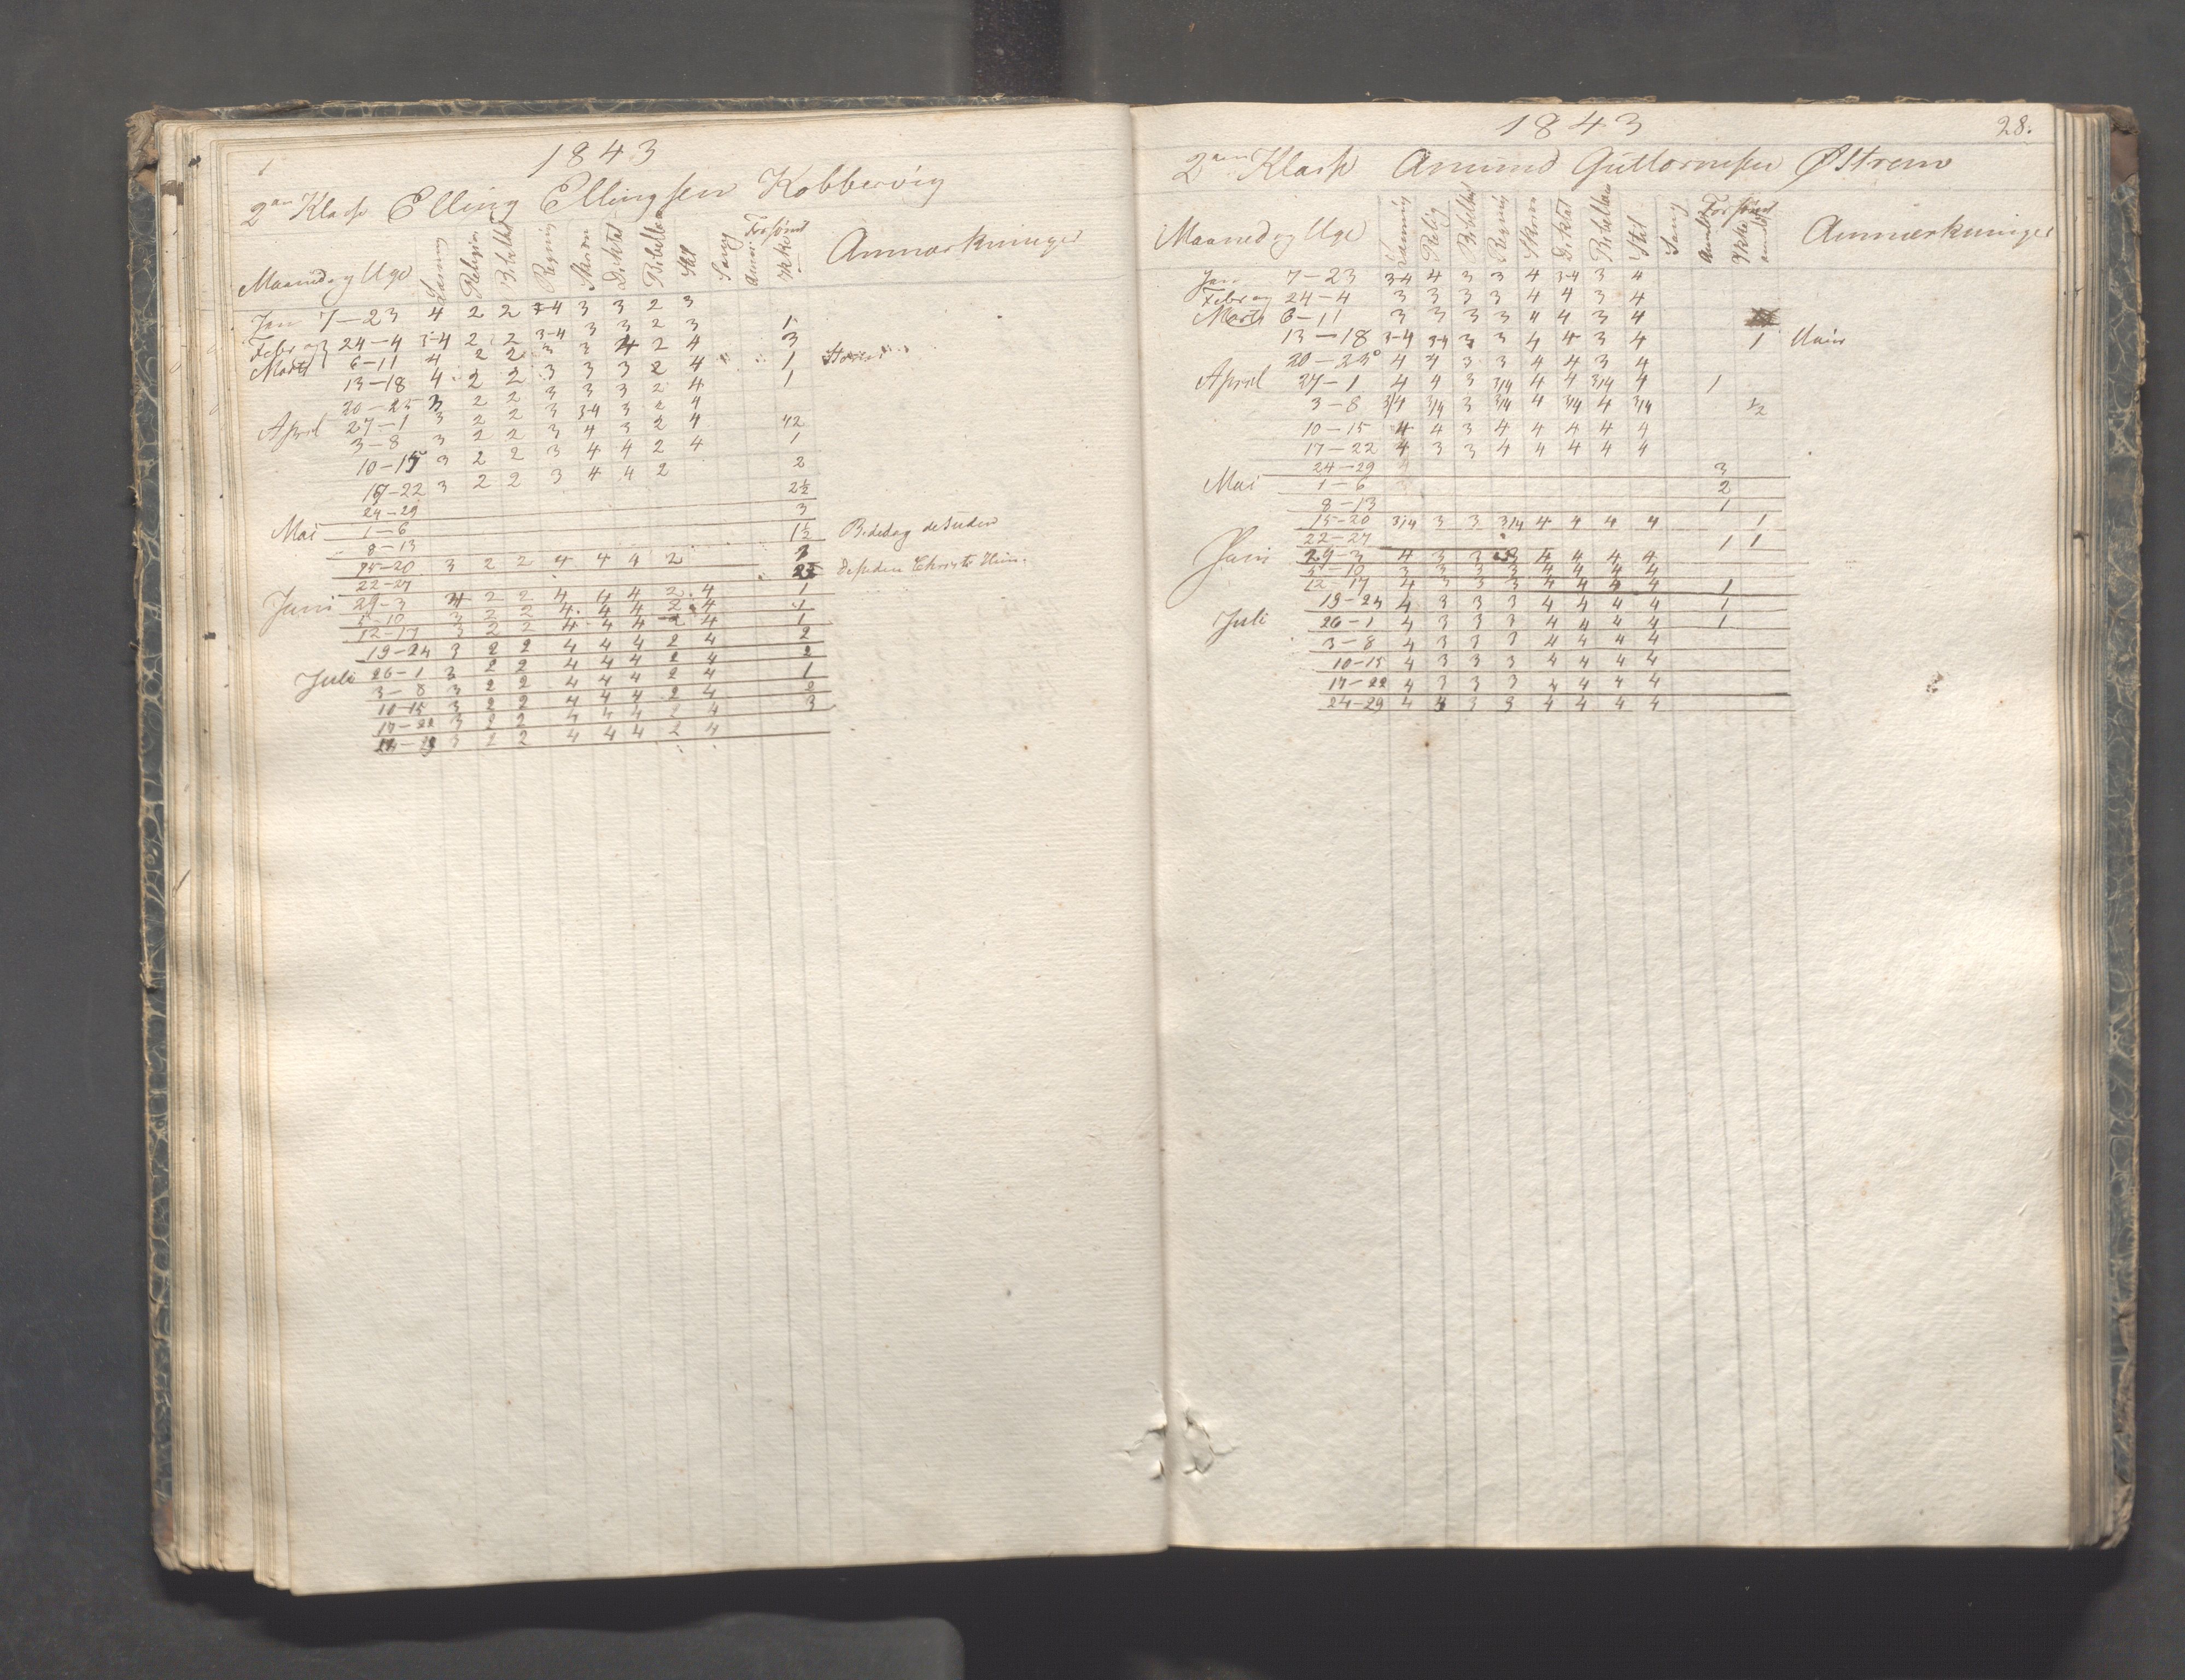 1843
2den Klasse Elling Ellingsen Kobbervig
Maaned og Uge Læsning Religion Bibelhist Regning Skrivn Diktat Bibellæs Stil Sang Forsømt Anm Ikke Anmærkninger
Jan 7-23 4 2 2 3-4 3 3 2 3
Febr og 24-4 3-4 2 2 3-4 3 3 2 3 1
Marts 6-11 4 2 2 3 3 4 2 4 3
13-18 4 2 2 3 3 3 2 4 1
20-25 3 2 2 3 3 3 2 4 1
April 27-1 3 2 2 3 3-4 3 2 4
3-8 3 2 2 3 4 3 2 4 1/2
10-15 3 2 2 3 4 4 2 4 1
17-22 3 2 2 3 4 4 2 2
24-29 2½
Mai 1-6 3
8-13 1½ Bededag desuden
15-20 3 2 2 4 4 4 2
22-27 desuden Christi Him.
Juni 29-3 4 2 2 4 4 4 2 4 1
5-10 3 2 2 4 4 4 2 4 1
12-17 3 2 2 4 4 4 2 4 1
19-24 3 2 2 4 4 4 2 4 2
Juli 26-1 3 2 2 4 4 4 2 4 2
3-8 3 2 2 4 4 4 2 4 1
10-15 3 2 2 4 4 4 2 4 2
17-22 3 2 2 4 4 4 2 4 3
24-29 3 2 2 4 4 4 2 4
1843 28.
2den Klasse Amund Guttormsen Østrem
Maaned og Uge Læsning Relig Bibelhist Regnig Skrivn Diktat Bibellæs Stil Sang Forsømt Anmeldt Ikke anmeldt Anmærkninger
Jan 7-23 3-4 4 3 3 4 3-4 3 4
Febr og 24-4 3 3 3 3 4 4 3 4
Marts 6-11 3 3 3 3 4 4 3 4
13-18 3-4 3-4 3 3 4 4 3 4 1
20-25 4 4 3 3 4 4 3 4
April 27-1 4 4 3 3/4 4 4 3/4 4 1
3-8 3/4 3/4 3 3/4 4 3/4 4 3/4 1/2
10-15 4 4 3 4 4 4 4 4
17-22 4 3 3 4 4 4 4 4
24-29 3
Mai 1-6 2
8-13 1
15-20 3/4 3 3 3/4 4 4 4 4 1
22-27 1 1
Juni 29-3 4 3 3 3 4 4 4 4
5-10 3 3 3 3 4 4 4 4
12-17 4 3 3 3 4 4 4 4 1
19-24 4 3 3 3 4 4 4 4 1
Juli 26-1 4 3 3 3 4 4 4 4 1
3-8 4 3 3 3 4 4 4 4
10-15 4 3 3 3 4 4 4 4
17-22 4 3 3 3 4 4 4 4
24-29 4 3 3 3 4 4 4 4